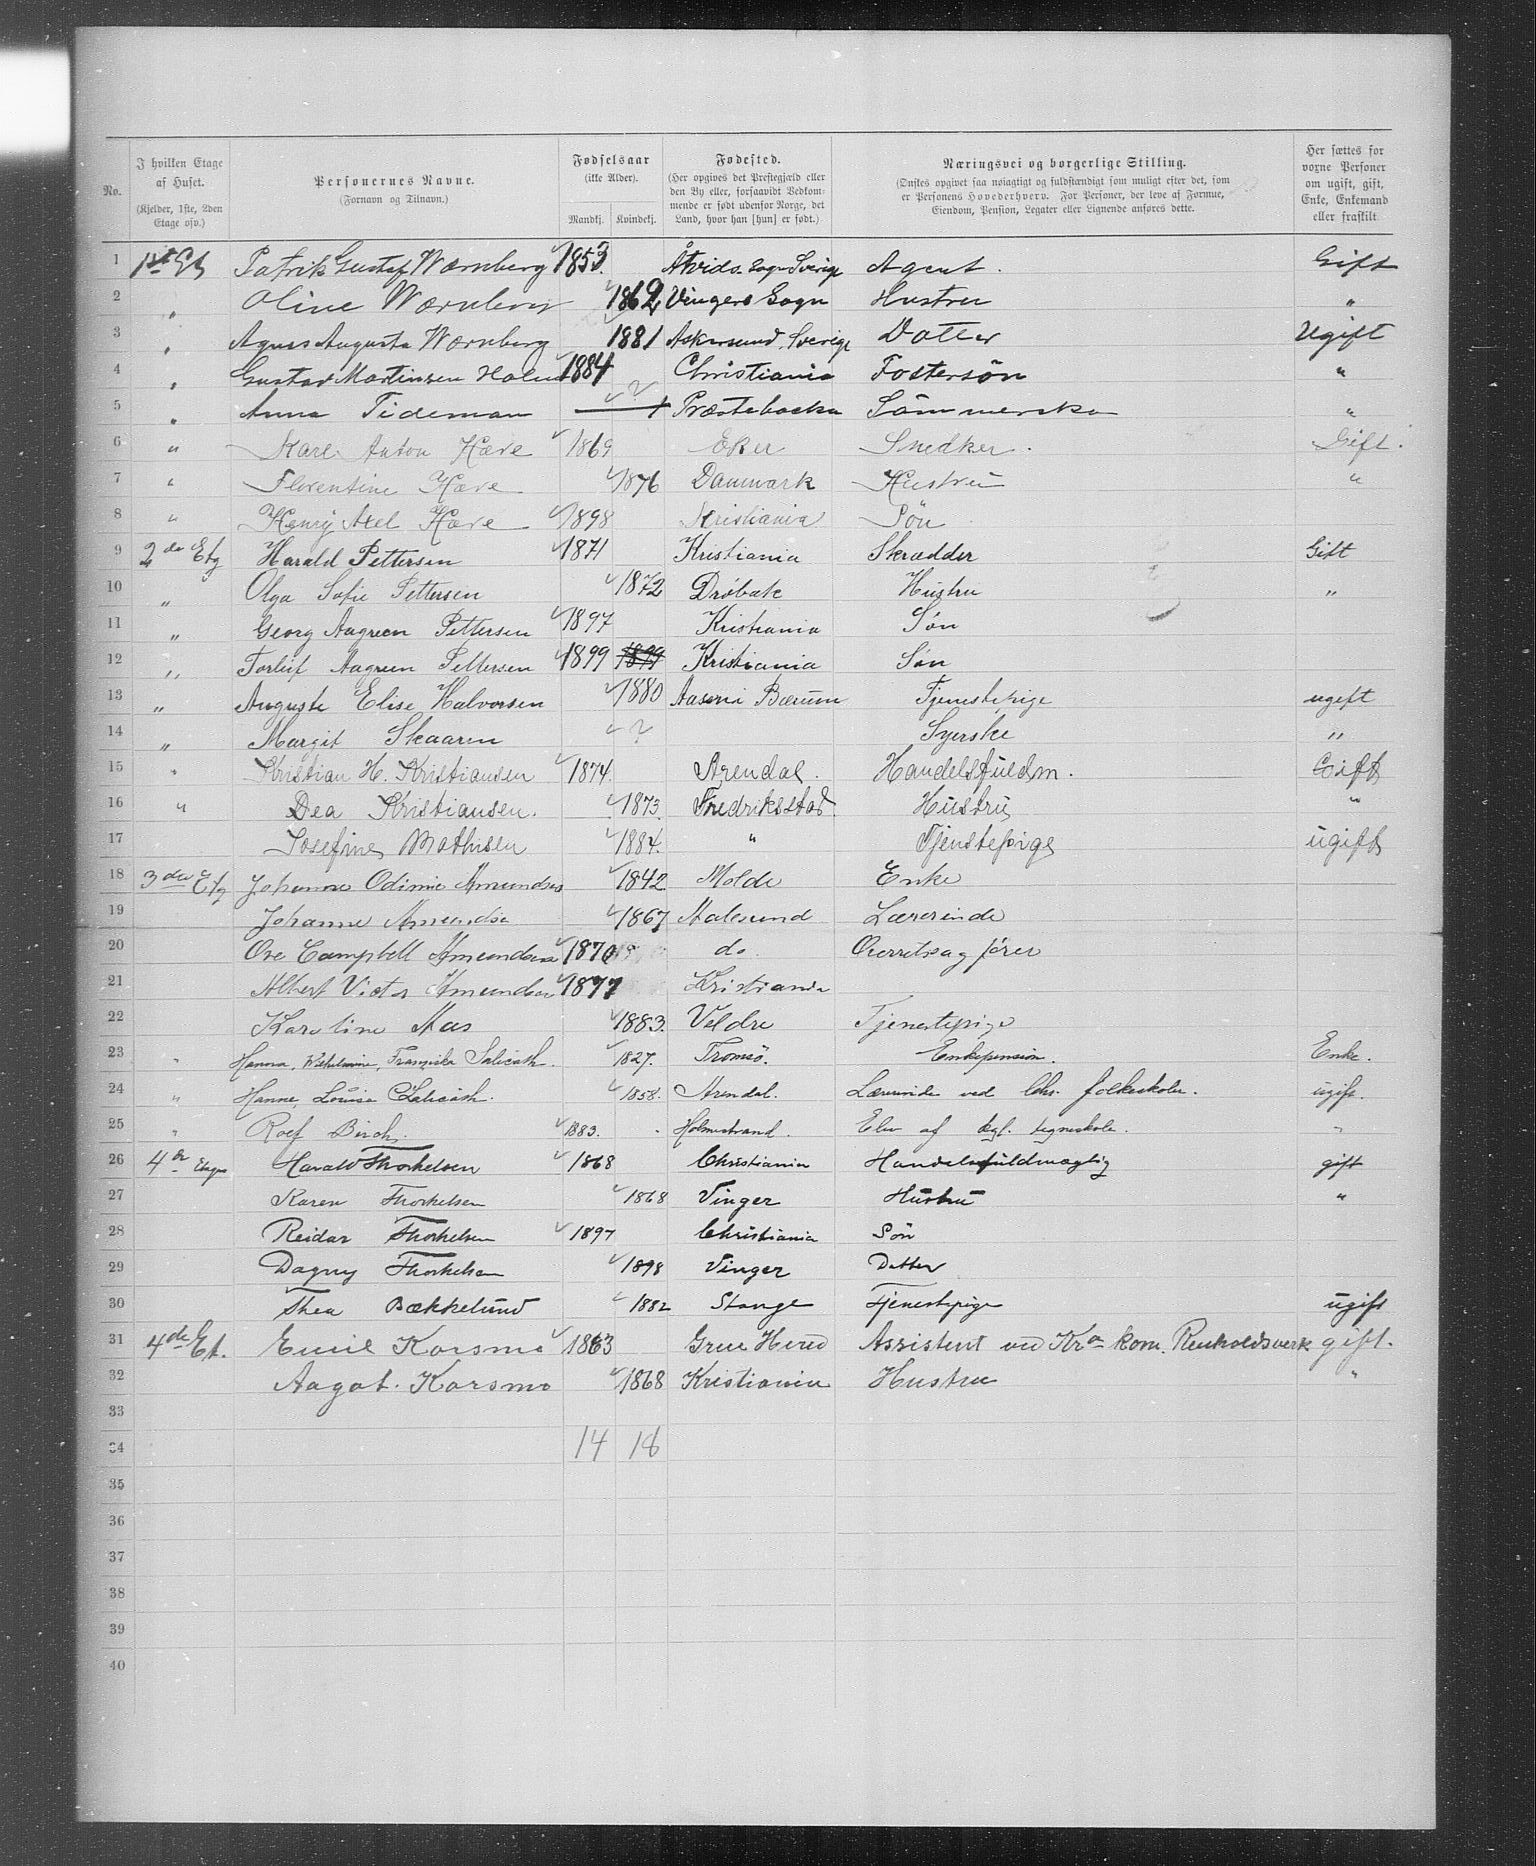 No.
I hvilken Etage af Huset. (Kjelder, 1ste, 2den Etage osv.)
Personernes Navne. (Fornavn og Tilnavn.)
Fødselsaar (ikke Alder). Mandkj. Kvindekj.
Fødested. (Her opgives det Prestegjæld eller den By eller, forsaavidt Vedkommende er født udenfor Norge, det Land, hvor han [hun] er født.)
Næringsvei og borgerlige Stilling. (Ønskes opgivet saa nøiagtigt og fuldstændigt som muligt efter det, som er Personens Hovederhverv. For Personer, der leve af Formue, Eiendom, Pension, Legater eller Lignende anføres dette.
Her sættes for voxne Personer om ugift, gift, Enke, Enkemand eller fraskilt
1 1st Etg Patrik Gustaf Wærnberg 1853. Åtvids. Sogn Sverige Agent. Gift
2 " Oline Wærnberg 1862 Vingers Sogn Hustru "
3 " Agnes Augusta Wærnberg 1881 Askersund, Sverige Datter Ugift
4 " Gustav Martinsen Holm 1884 Christiania Fostersøn "
5 " Anna Tideman ? Præstebacka Sömmerska "
6 " Karl Anton Hære 1869 Eker Snedker. Gift.
7 " Florentine Hære 1876 Danmark Hustru "
8 " Henry Axel Hære 1898 Kristiania Søn
9 2de Etg Harald Pettersen 1871 Kristiania Skrædder Gift
10 " Olga Sofie Pettersen 1872 Drøbak Hustru "
11 " Georg Aagreen Pettersen 1897 Kristiania Søn
12 " Torleif Aagreen Pettersen 1899 1899 Kristiania Søn
13 " Auguste Elise Halvorsen 1880 Aaserni Bærum Tjenestepige ugift
14 " Margit Skaaren ? Syerske "
15 " Kristian H. Kristiansen 1874 Arendal. Handelsfuldm. Gift
16 " Dea Kristiansen. 1873. Fredriksstad Hustru "
17 Josefine Mathisen 1884. " Tjenstepige ugift
18 3die Etg Johanne Odinie Amundsen 1842 Molde Enke
19 Johanne Amundsen 1867 Aalesund Lærerinde
20 Ove Campbell Amundsen 1870 do Overretssagfører
21 Albert Victor Amundsen 1877 Kristiania
22 Karoline Aas 1883. Veldre Tjenestepige
23 " Hanna, Wilhelmine, Franziska Salicath. 1827. Tromsø. Enkepension. Enke.
24 " Hanne, Louise Salicath. 1858. Arendal. Lærerinde ved Chr. folkeskoler. ugift.
25 " Rolf Birch. 1883. Holmestrand. Elev af kgl. tegneskole. "
26 4de Etage Harald Thorkelsen 1868 Christiania Handelsfuldmægtig gift
27 Karen Thorkelsen 1868 Vinger Hustru "
28 Reidar Thorkelsen 1897 Christiania Søn
29 Dagny Thorkelsen 1898 Vinger Datter
30 Thea Bækkelund 1882 Stange Tjenestepige ugift
31 4de Et. Emil Korsmo 1863 Grue Herred Assistent ved Kra kom. Renholdsverk gift.
32 Aagot Korsmo 1868 Kristiania Hustru "
33
34 14 18
35
36
37
38
39
40